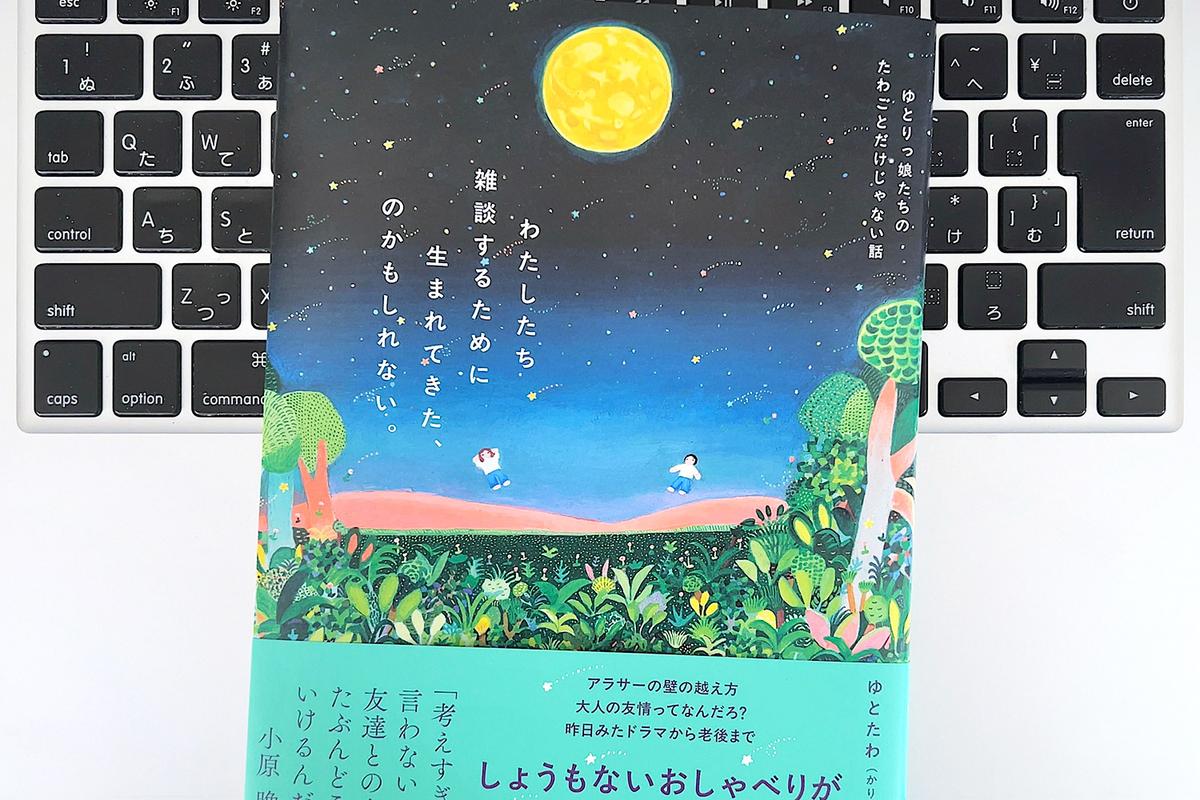 ゆとりっ娘たちの
たわごとだけじゃない話
わたしたち
雑談するために
生まれてきた、
のかもしれない。
アラサーの壁の越え方
大人の友情ってなんだろ?
昨日みたドラマから老後まで
しょうもないおしゃべりが
ゆとたわ(かり
「考えすぎ
言わない
友達との
たぶんどこ
いけるんだ
小原 晩
esc
F1
F2
F9
F10
F11
F12
! 1 ぬ
" 2 ふ
# 3 あ
~ ^ へ
| ¥ ー
delete
tab
Q た
W て
{ [ 「
enter
return
control
A ち
S と
* け
} ] 」 む
shift
Z つ っ
X
ろ
shift
caps
alt option
⌘ command